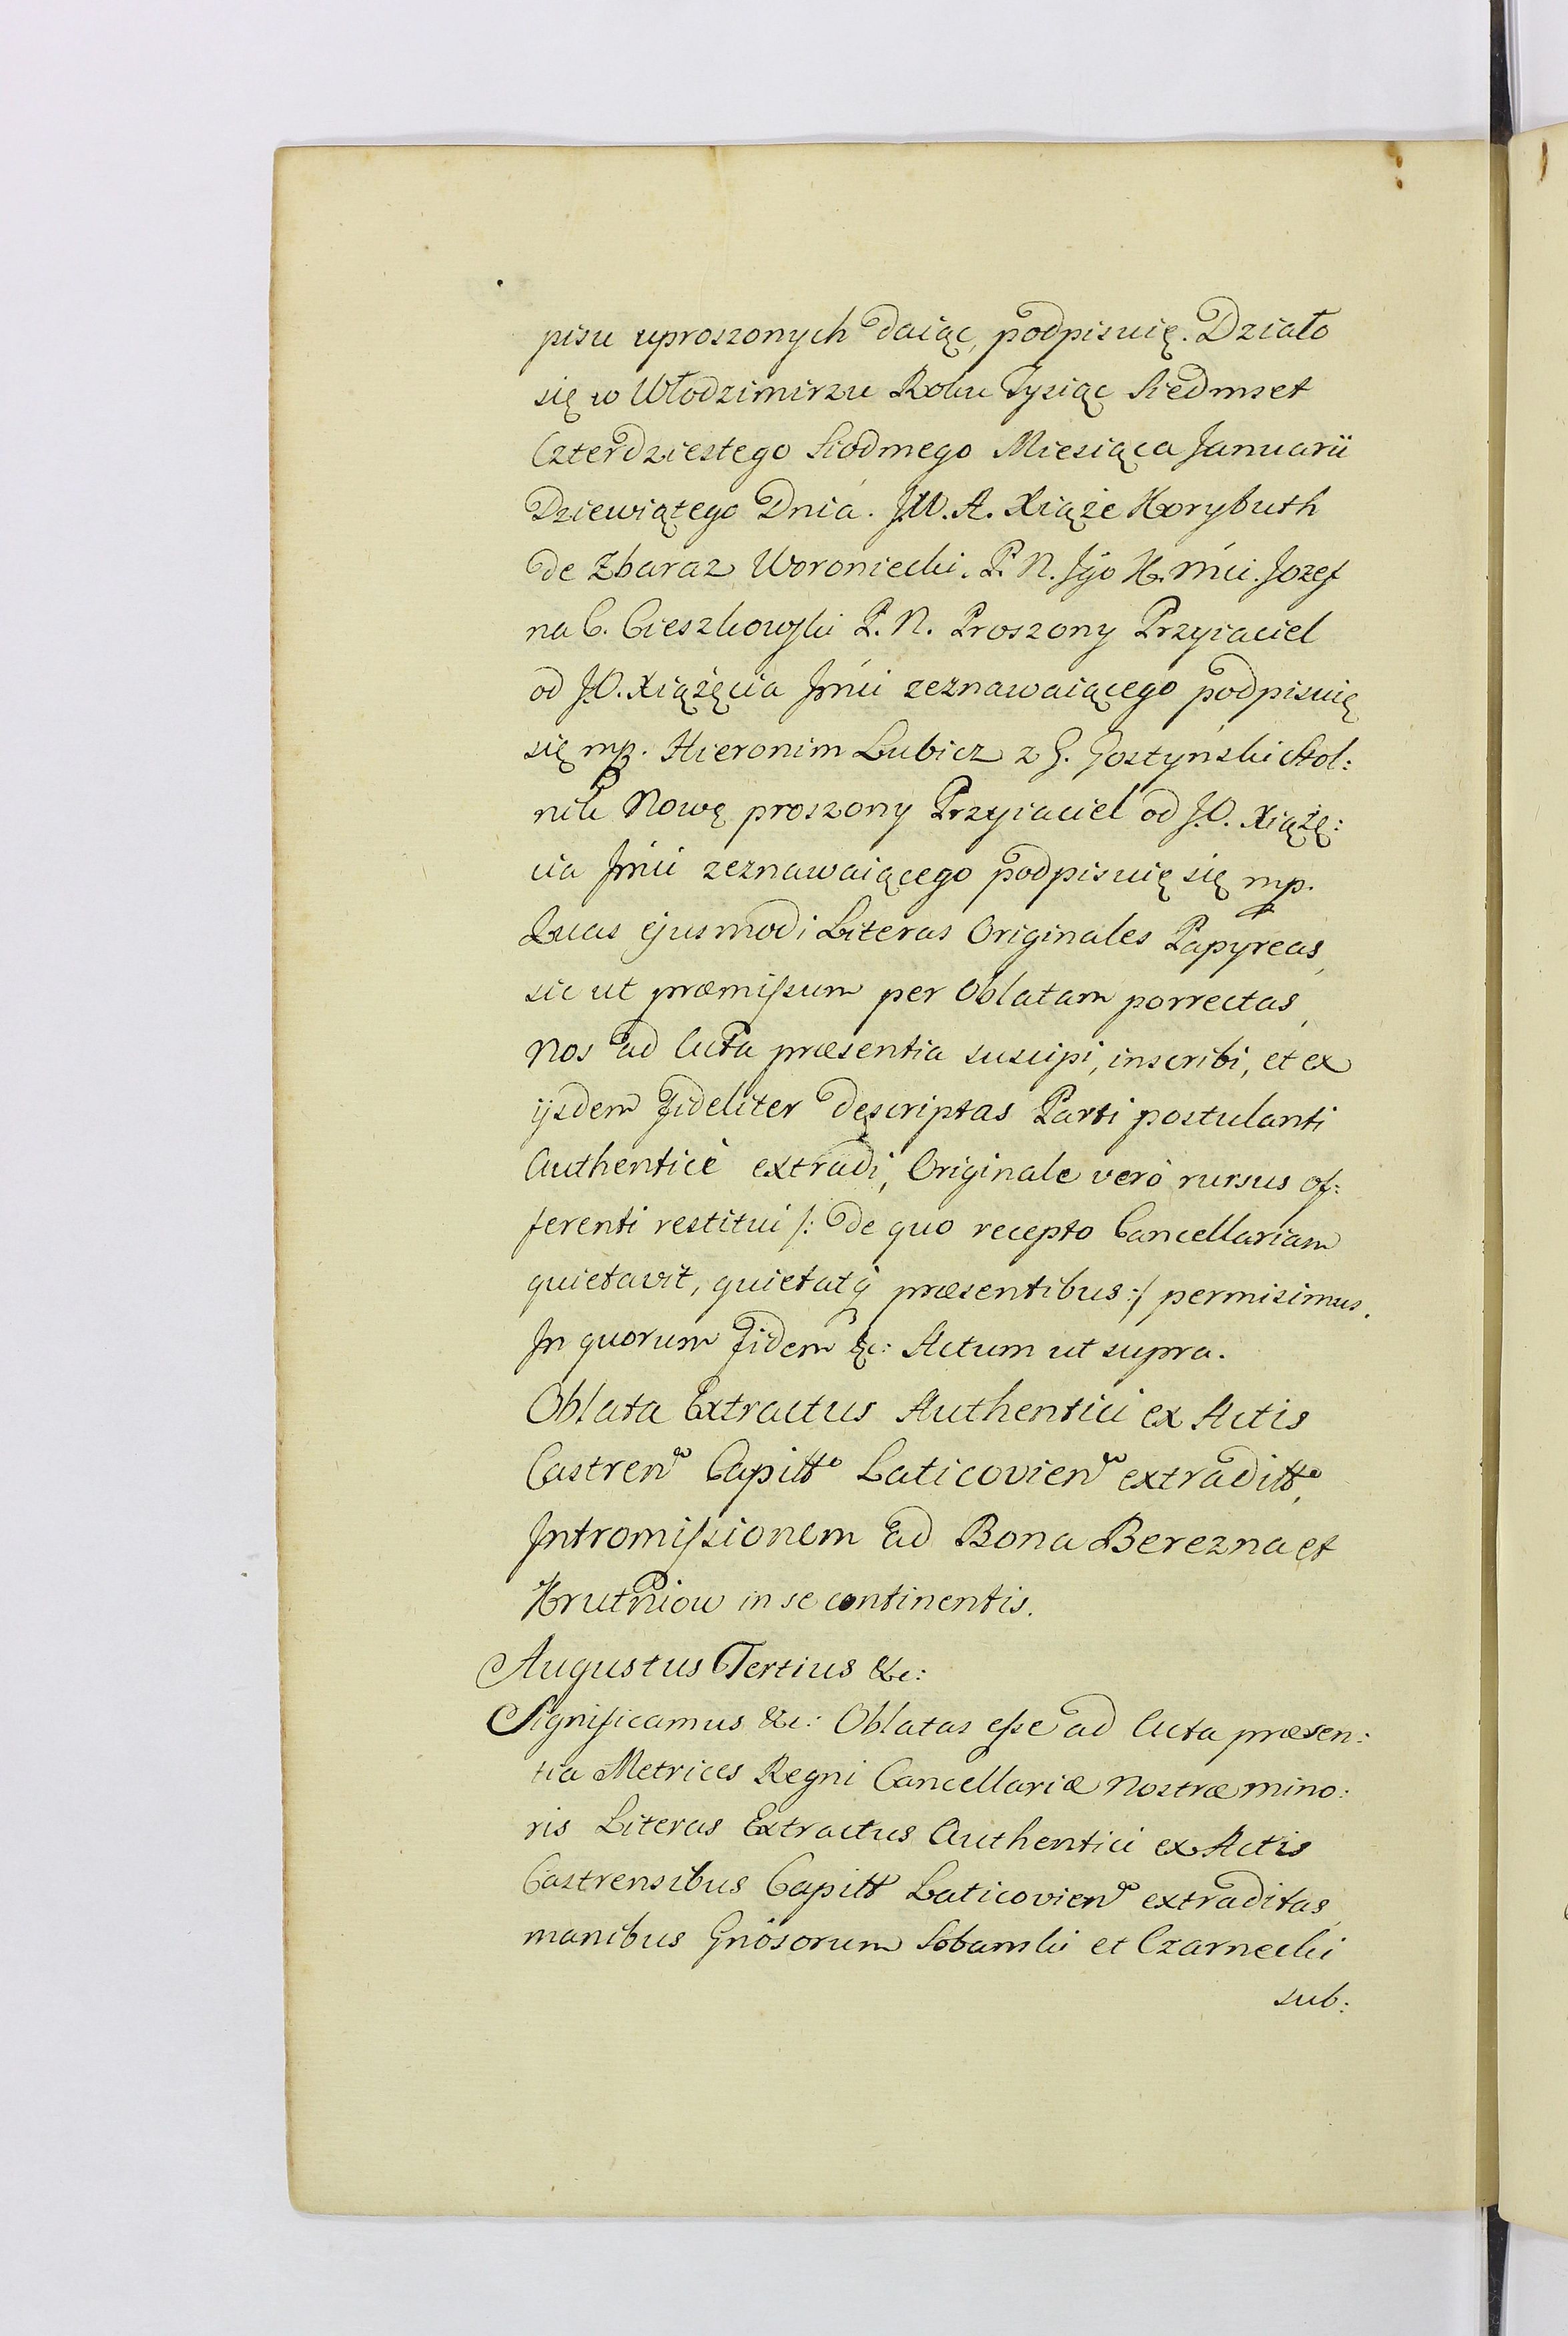 pisu uproszonych daiąc, podpisuię. Działo
się w Włodzimirzu Roku Tysiąc Siedmset
Czterdziestego Siodmego Miesiąca Januarii
Dziewiątego Dnia. J.W.A. Xiąże Korybuth
de Zbaraz Woroniecki. P. N. Jgo K. Mći. Jozef
na C. Cieszkowski P. N. Proszony Przyiaciel
od J.O. Xiążęcia Jmći zeznawaiącego podpisuię
się mp. Hieronim Lubicz z G. Gostyński Stol:
nik Nowę proszony Przyiaciel od J.O. Xiążę:
cia Jmći zeznawaiącego podpisuię się mp.
Quas ejusmodi Literas Originales Papyreas,
sic ut præmissum per Oblatam porrectas,
Nos ad Acta præsentia suscipi, inscribi, et ex
ijsdem fideliter descriptas Parti postulanti
Authenticè extradi, Originale verò rursus of:
ferenti restitui /: de quo recepto Cancellariam
quietavit, quietatq præsentibus :/ permisimus.
In quorum Fidem &c: Actum ut supra.
Oblata Extractus Authentici ex Actis
Castren Capitt Laticovien extraditt,
Intromissionem ad Bona Berezna et
Krutniow in se continentis.
Augustus Tertius &c:
Significamus &c: Oblatas esse ad Acta præsen:
tia Metrices Regni Cancellariæ Nostræ mino:
ris Literas Extractus Authentici ex Actis
Castrensibus Capitt Laticovien extraditas,
manibus Gnosorum Sobanski et Czarnecki
sub: